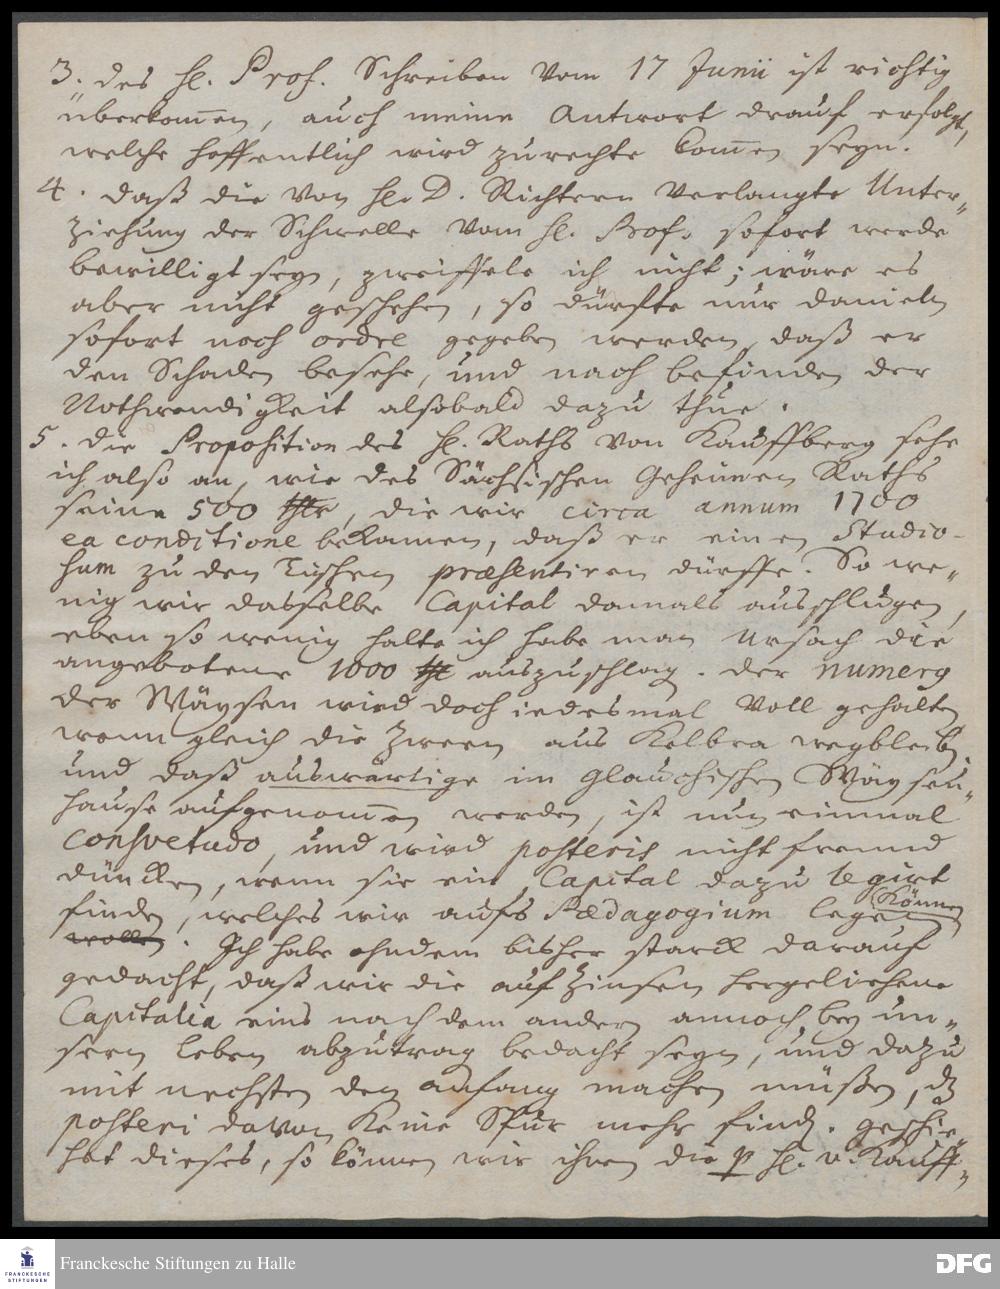 3. des H. Prof. Schreiben vom 17 Junii ist richtig
überkom̅en, auch meine Antwort drauf erfolgt,
welche hoffentlich wird zurechte kom̅en seyn.
4. daß die von H. D. Richtern verlangte Unter-
ziehung der Schwelle vom H. Prof. sofort werde
bewilligt seyn, zweiffele ich nicht; wäre es
aber nicht geschehen, so dürfte nur Danieln
sofort noch ordre gegeben werden, daß er
den Schaden besehe, und nach befinden der
Nothwendigkeit alsobald dazu thue.
5. die Proposition des H. Raths von Kauffberg sehe
ich also an, wie des Sächsischen Geheimen Raths
seine 500 thlr, die wir circa annum 1700
ea conditione bekamen, daß er einen Studio-
sum zu den Tischen præsentiren dürffe. So we-
nig wir dasselbe Capital damals ausschlugen,
eben so wenig halte ich habe man Ursach die
angebotene 1000 thl auszuschlag. der numerus
der Wäysen wird doch iedesmal voll gehalten
wenn gleich die Zween aus Kelbra wegbleiben,
und daß auswärtige im Glauchischen Wäysen-
hause aufgenom̅en werden, ist nun einmal
consvetudo, und wird posteris nicht fremd
düncken, wenn sie ein Capital dazu legirt
finden, welches wir aufs Pædagogium legen können
wollen. Ich habe ohndem bisher starck darauf
gedacht, daß wir die auf Zinsen hergeliehene
Capitalia eins nach dem andern annoch bey un-
sern Leben abzutrag bedacht seyn, und dazu
mit nechsten den anfang machen müßen, dz
posteri davon keine Spur mehr find. geschie-
het dieses, so können wir ihnen die p H. v. Kauff-
Franckesche Stiftungen zu Halle
FRANCKESCHE
STIFTUNGEN
DFG